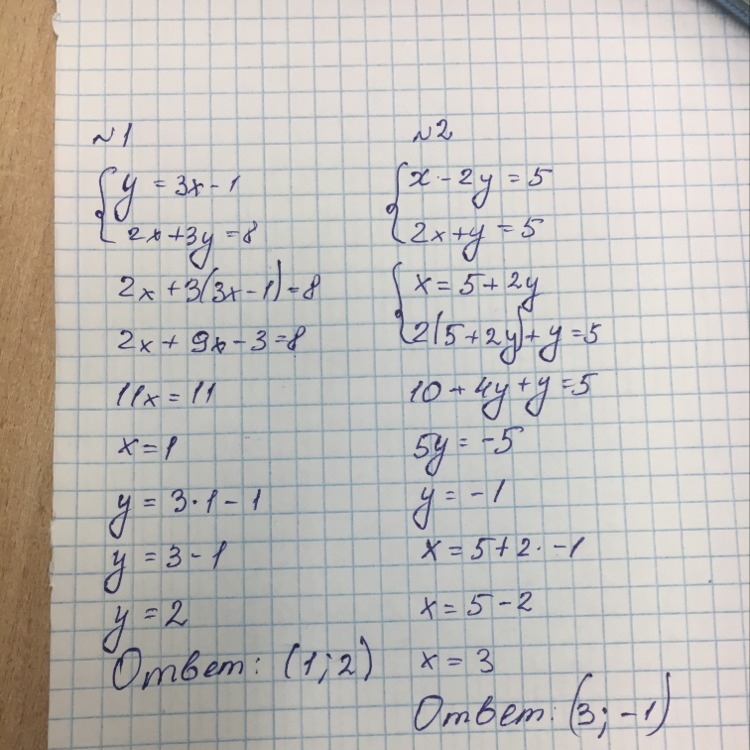 №1
{ y = 3x - 1
2x + 3y = 8
2x + 3(3x - 1) = 8
2x + 9x - 3 = 8
11x = 11
x = 1
y = 3 · 1 - 1
y = 3 - 1
y = 2
Ответ: (1; 2)
№2
{ x - 2y = 5
2x + y = 5
{ x = 5 + 2y
2(5 + 2y) + y = 5
10 + 4y + y = 5
5y = -5
y = -1
x = 5 + 2 · -1
x = 5 - 2
x = 3
Ответ: (3; -1)